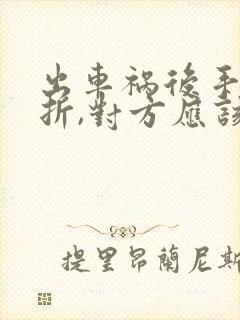 出車禍後手
折,對方應該
提里昂蘭尼斯